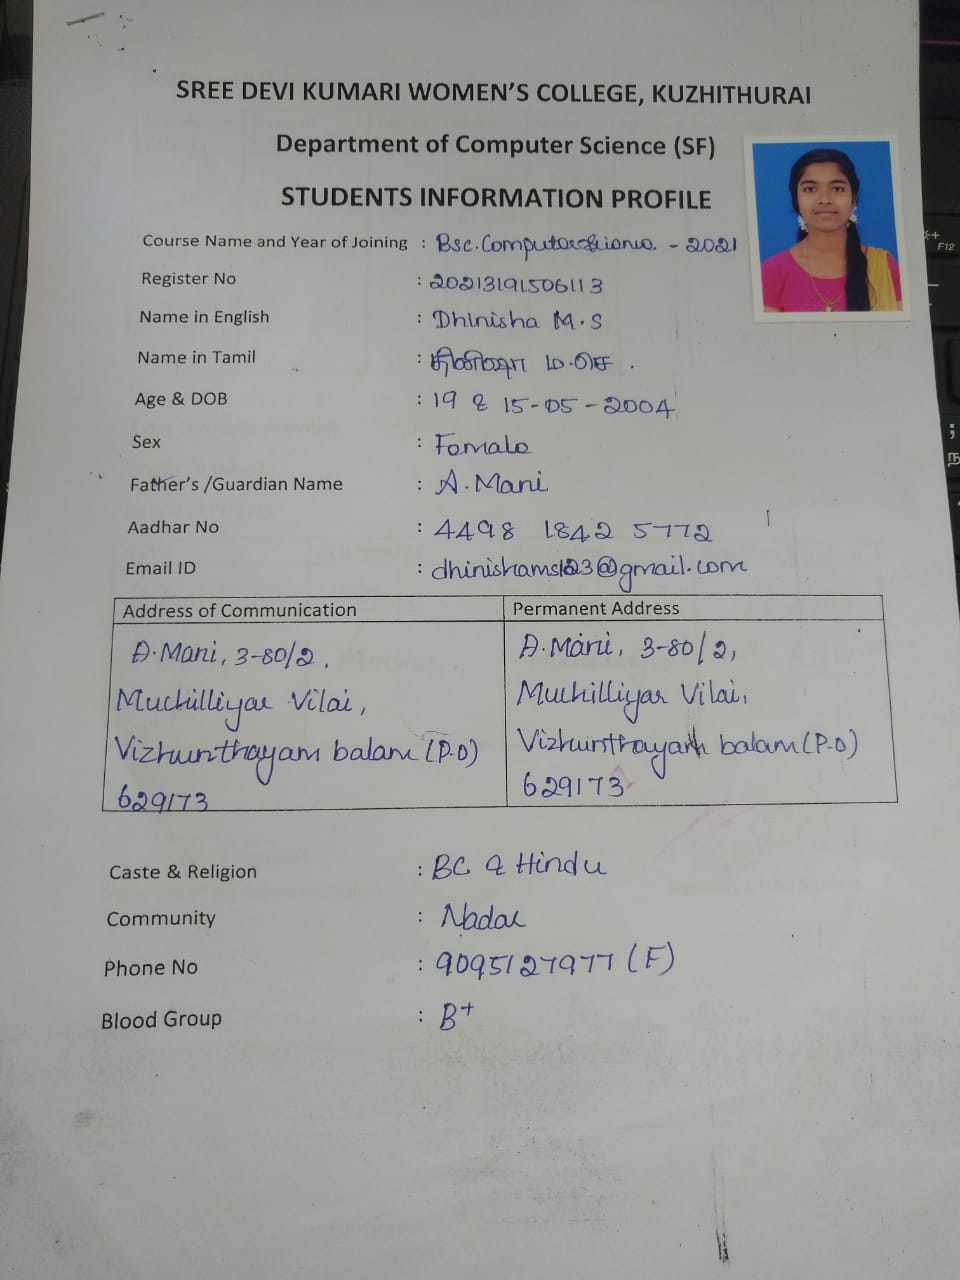 SREE DEVI KUMARI WOMEN'S COLLEGE, KUZHITHURAI
Department of Computer Science (SF)
STUDENTS INFORMATION PROFILE
Course Name and Year of Joining : Bsc. Computer Science - 2021
Register No : 20213191506113
Name in English : Dhinisha M.S
Name in Tamil : தினிஷா ம.செ .
Age & DOB : 19 & 15-05-2004
Sex : Female
Father's /Guardian Name : A. Mani
Aadhar No : 4498 1842 5772
Email ID : dhinishams123@gmail.com
Address of Communication Permanent Address
A. Mani, 3-80/2, A. Mani, 3-80/2,
Muchilliyar Vilai, Muchilliyar Vilai,
Vizhunthayam balam (P.O) Vizhunthayam balam (P.O)
629173 629173
Caste & Religion : BC & Hindu
Community : Nadar
Phone No : 9095127977 (F)
Blood Group : B+